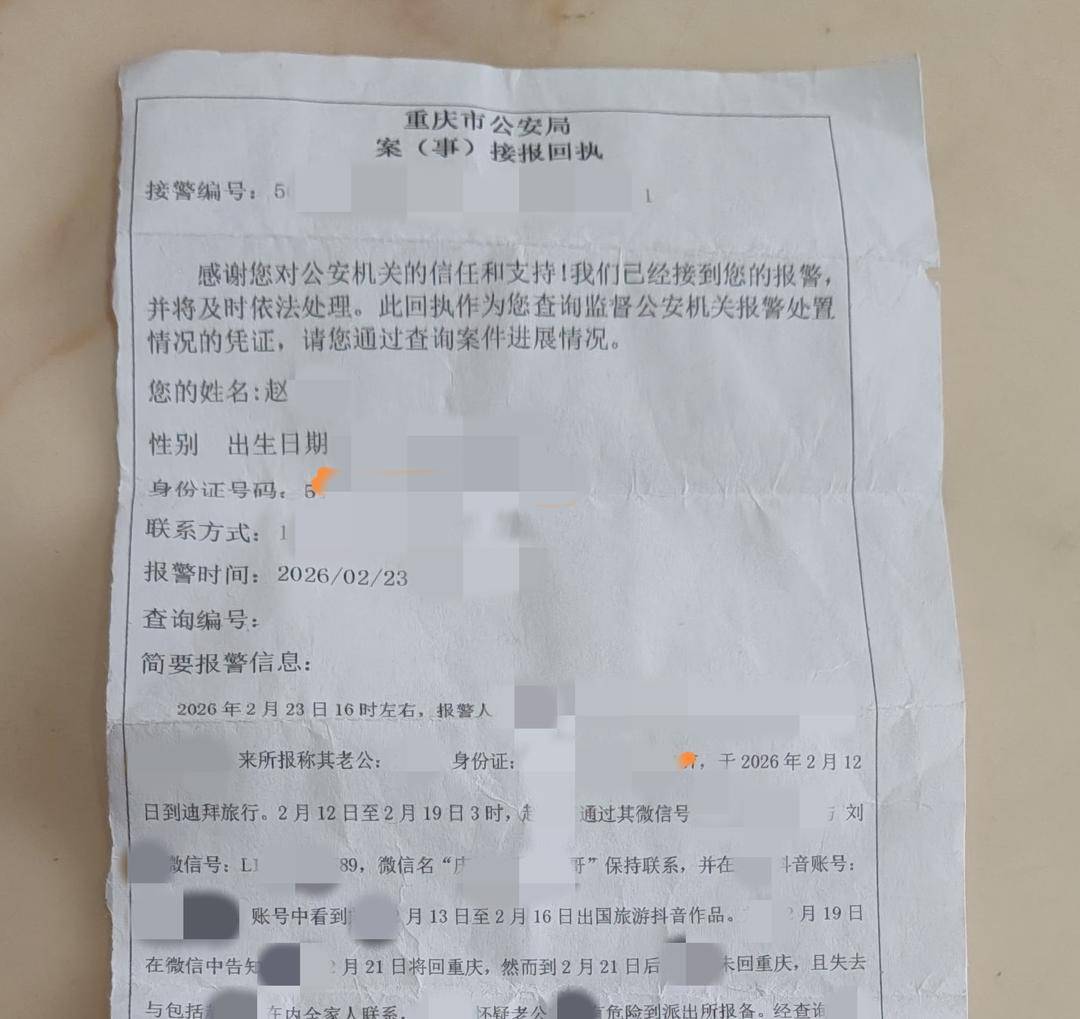 重庆市公安局
案（事）接报回执
接警编号：5 1
感谢您对公安机关的信任和支持！我们已经接到您的报警，
并将及时依法处理。此回执作为您查询监督公安机关报警处置
情况的凭证，请您通过查询案件进展情况。
您的姓名:赵
性别 出生日期
身份证号码：5
联系方式：1
报警时间：2026/02/23
查询编号：
简要报警信息：
2026年2月23日16时左右，报警人
来所报称其老公： 身份证： ，于2026年2月12
日到迪拜旅行。2月12日至2月19日3时， 通过其微信号 刘
微信号：L 89，微信名“庆 哥”保持联系，并在 抖音账号：
账号中看到 月13日至2月16日出国旅游抖音作品。 2月19日
在微信中告知 2月21日将回重庆，然而到2月21日后 未回重庆，且失去
与包括 在内全家人联系， 怀疑老公 有危险到派出所报备。经查询